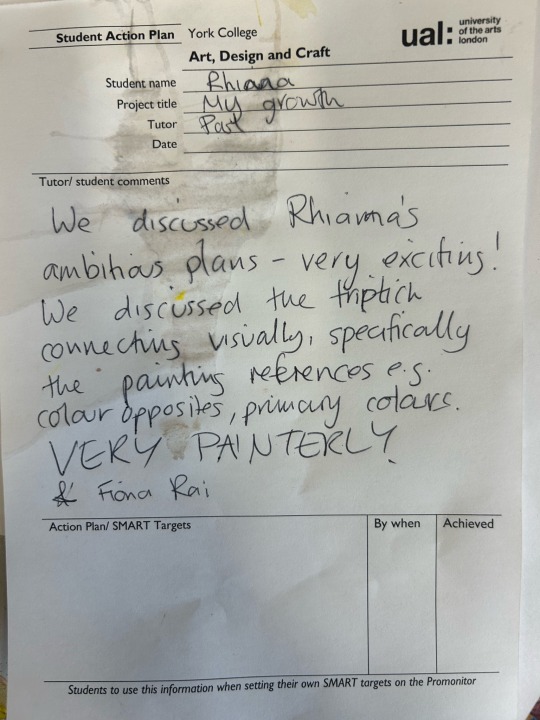 Student Action Plan York College
ual: university of the arts london
Art, Design and Craft
Student name Rhianna
Project title My growth
Tutor Paul
Date
Tutor/ student comments
We discussed Rhianna's
ambitious plans - very exciting!
We discussed the triptich
connecting visually, specifically
the painting references e.g.
colour opposites, primary colours.
VERY PAINTERLY!
& Fiona Rai
Action Plan/ SMART Targets By when Achieved
Students to use this information when setting their own SMART targets on the Promonitor